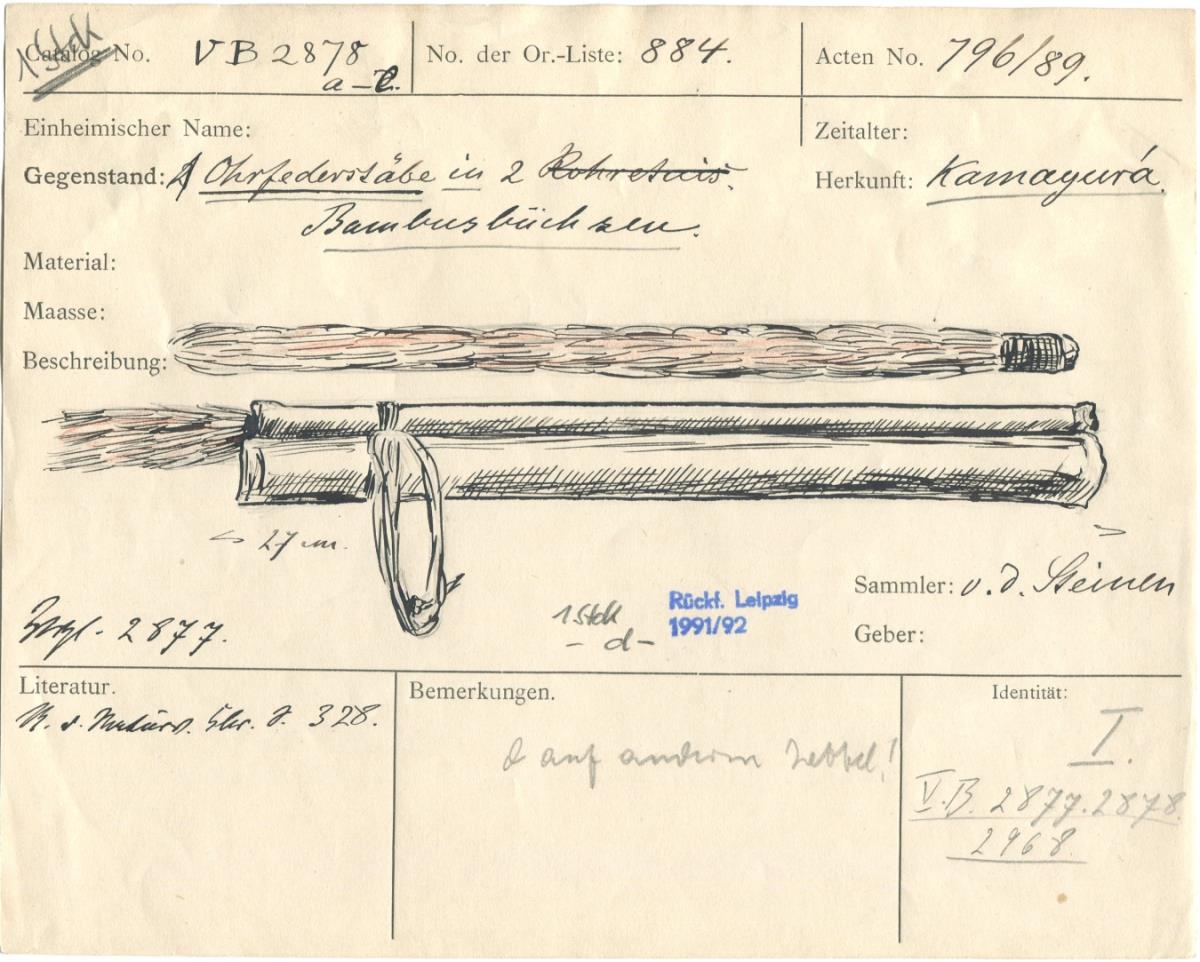 1 Stck
Catalog No. VB 2878
a–e.
No. der Or.-Liste: 884.
Acten No. 796/89.
Einheimischer Name:
Zeitalter:
Gegenstand: Ohrfederstäbe in 2 Rohretuis.
Bambusbüchsen.
Herkunft: Kamayurá.
Material:
Maasse:
Beschreibung:
27 cm.
Sammler: v. d. Steinen
1 Stck
– d –
Rückf. Leipzig
1991/92
Geber:
Vergl. 2877.
Literatur.
S. 328.
Bemerkungen.
d auf anderem Zettel!
Identität:
I.
V.B. 2877. 2878.
2968.